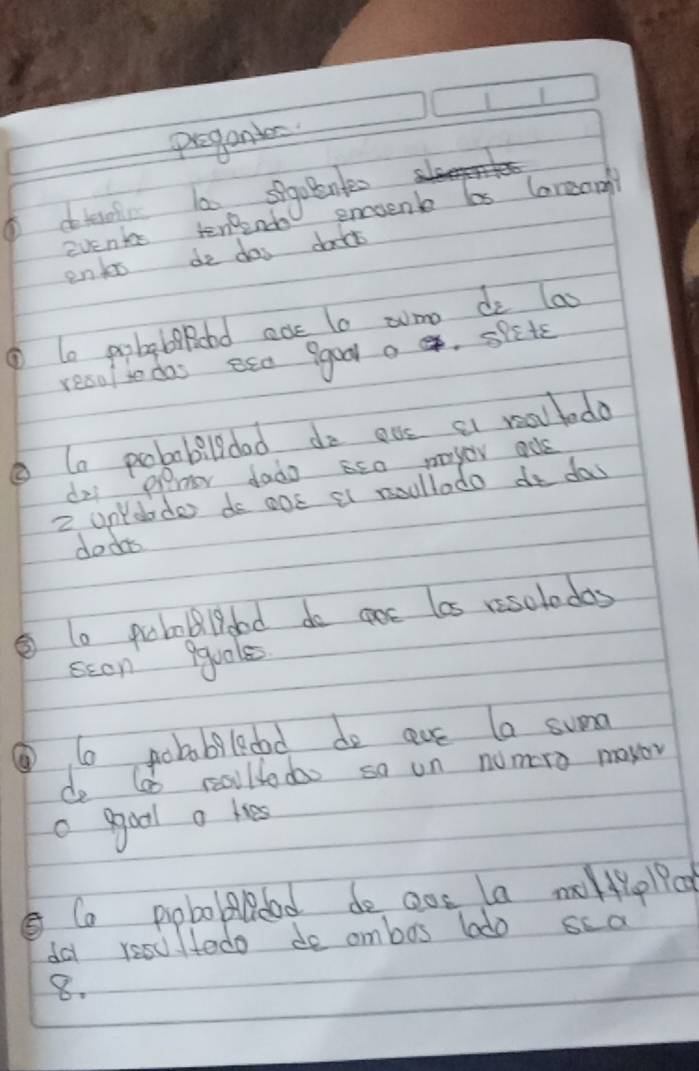 pregantas.
① determine los siguientes
eventos teniendo encuenta los lanzami
entos de dos dados
① la probabilidad que la suma de los
resoltados sea igual a siete
② la probabilidad de que el resultado
del primer dado sea mayor que
2 unidades de que el resultado de dos
dados
③ la probabilidad de que los resoltados
sean iguales.
④ la probabilidad de que la suma
de los resultados sea un numero mayor
o igual a tres
⑤ la probabilidad de que la
del resultado de ambos lado sea
8.